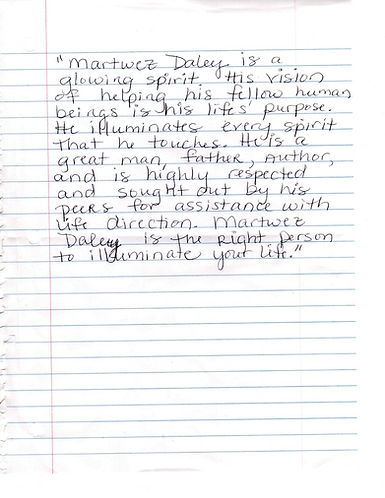 "Martwez Daley is a
glowing spirit. His vision
of helping his fellow human
beings is his lifes' purpose.
He illuminates every spirit
that he touches. He is a
great man, father, Author,
and is highly respected
and sought out by his
peers for assistance with
life direction. Martwez
Daley is the Right person
to illuminate your life."